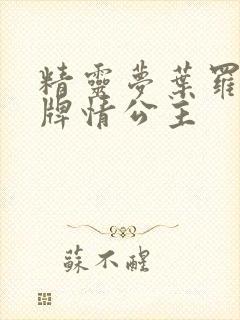 精靈夢葉羅
牌情公主
蘇不醒